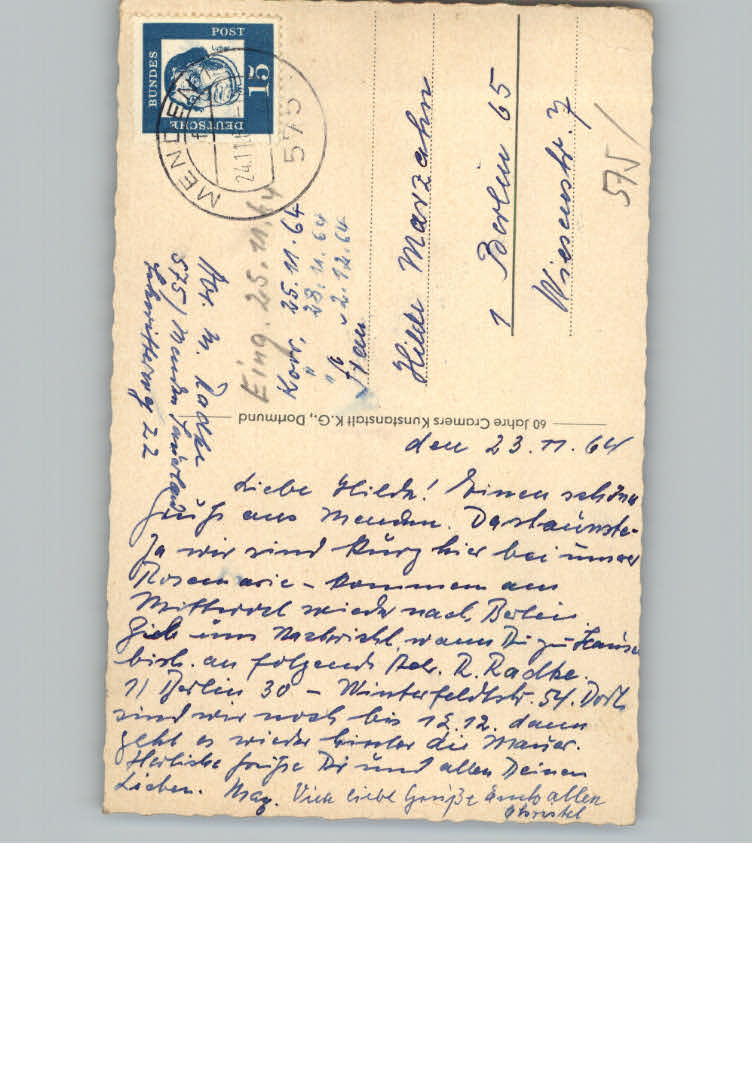 DEUTSCHE
BUNDES
POST
15
MENDEN
24.11.
575
Eing. 25.11.64
Kow. 25.11.64
" 28.11.64
" 2.12.64
Abs. M. Radke
575 / Menden Sauerland
22
Frau
Hilde Marzahn
1 Berlin 65
Wiesenstr. 7
575/
60 Jahre Cramers Kunstanstalt K.G., Dortmund
den 23.11.64
Liebe Hilde! Einen schönen
Gruß aus Menden. Da staunste
Ja wir sind kurz hier bei unser
Rosemarie – kommen am
Mittwoch wieder nach Berlin.
Gieb uns Nachricht, wann Du zu Hause
bist. an folgende Adr. R. Radke.
11 Berlin 30 – Winterfeldtstr. 54. Dort
sind wir noch bis 12.12. dann
geht es wieder hinter die Mauer.
Herliche Grüße Dir und allen Deinen
Lieben. Viele liebe Grüße Euch allen